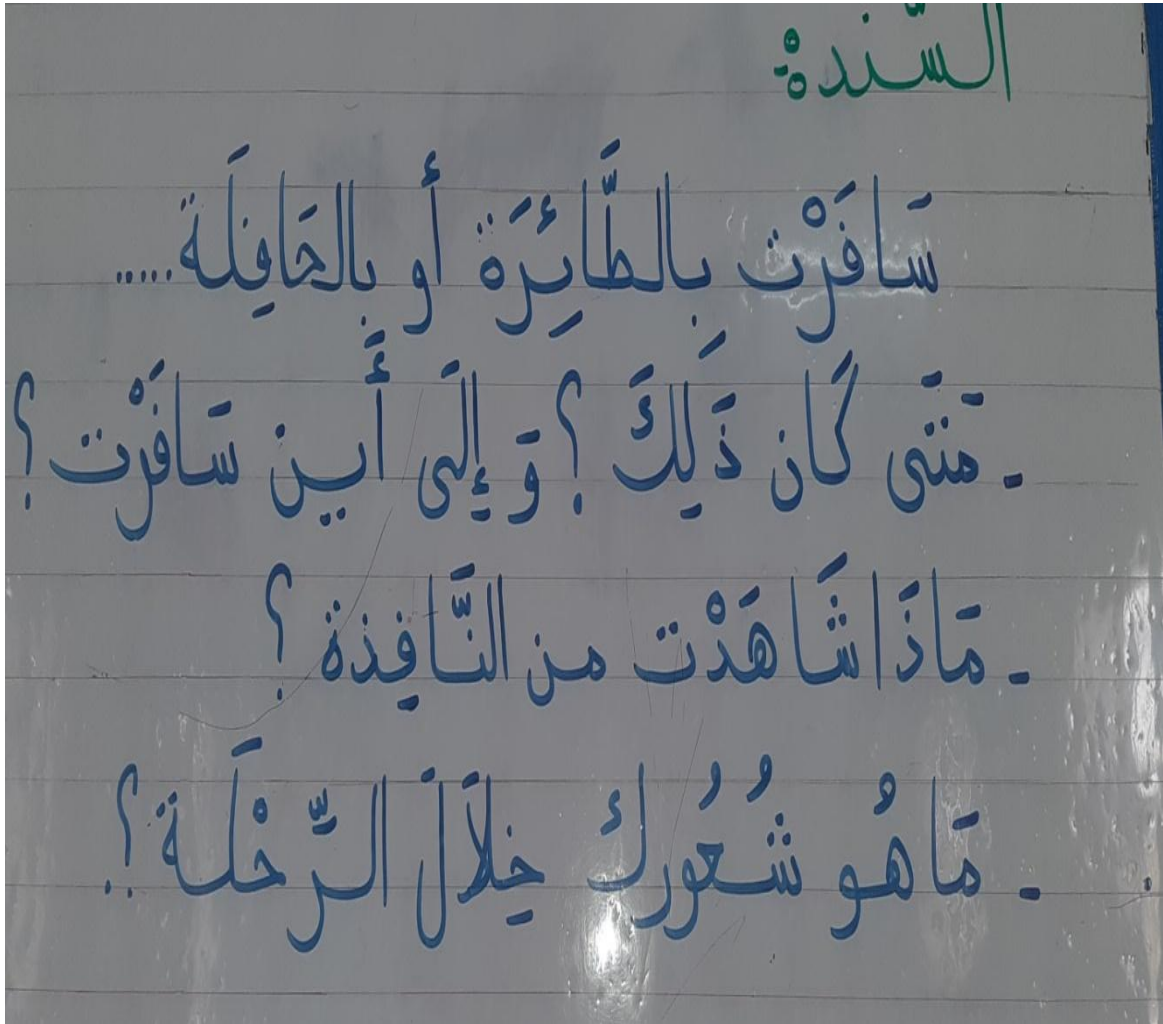 السّندة:
سَافَرْت بِالطَّائِرَة أو بِالحَافِلَة.....
- مَتَى كَان ذَلِكَ؟ وَ إِلَى أَين سَافَرْت؟
- مَاذَا شَاهَدْت من النَّافِذة؟
- مَا هُو شُعُورك خِلاَلَ الرِّحْلَة؟.